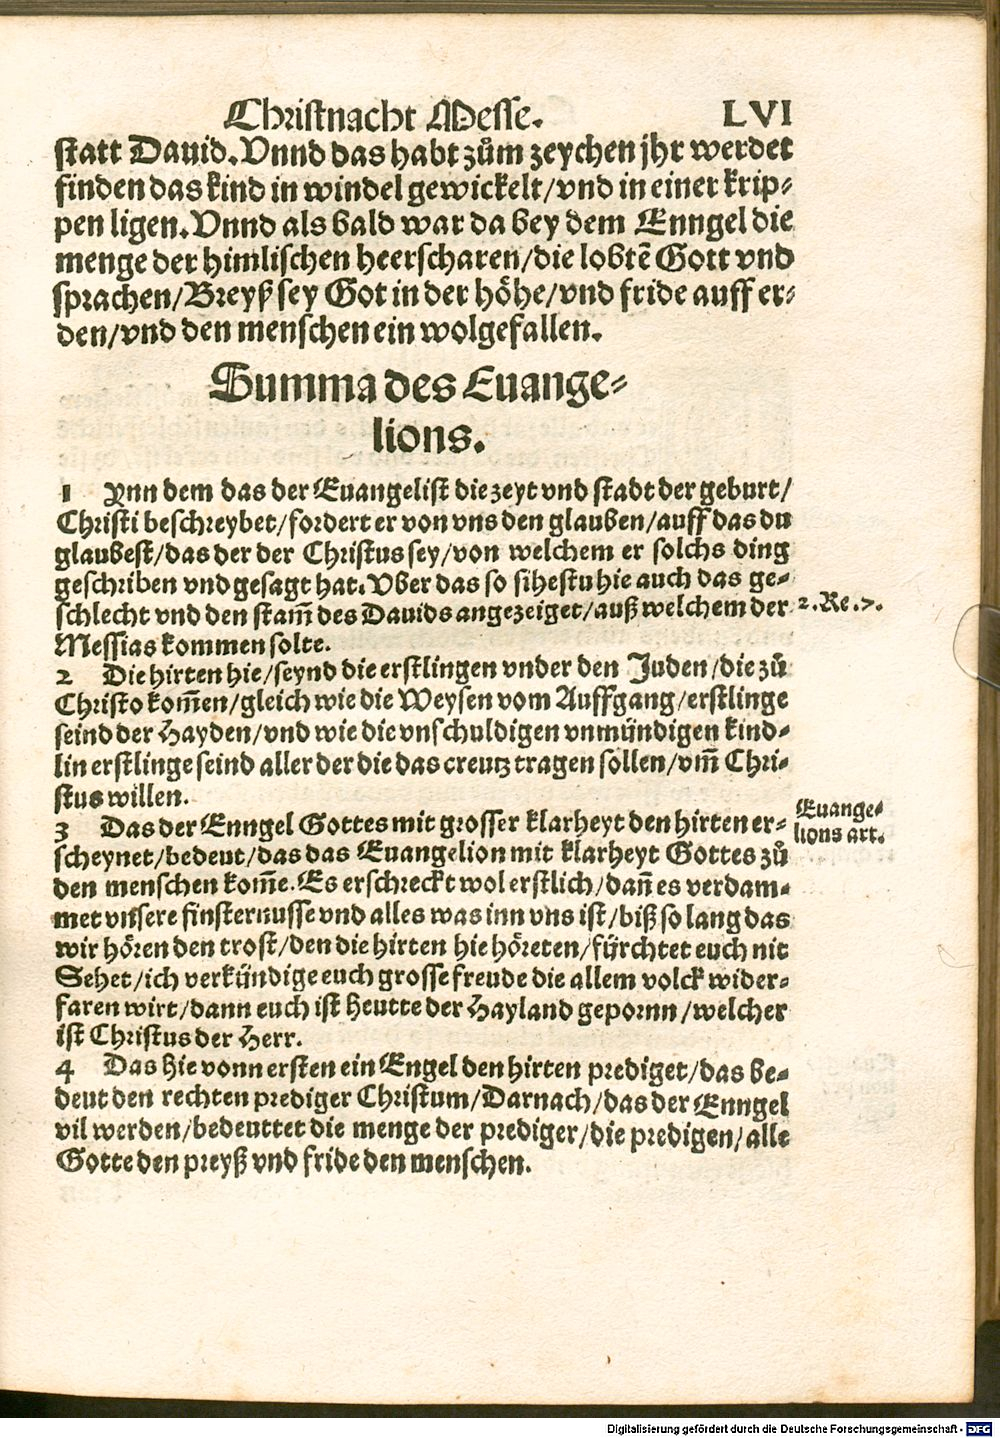 Christnacht Messe. LVI
statt Dauid. Vnnd das habt zům zeychen jhr werdet
finden das kind in windel gewickelt/vnd in einer krip⸗
pen ligen. Vnnd als bald war da bey dem Enngel die
menge der himlischen heerscharen/die lobtē Gott vnd
sprachen/Breyß sey Got in der höhe/vnd fride auff er⸗
den/vnd den menschen ein wolgefallen.
Summa des Euange⸗
lions.
1 Ynn dem das der Euangelist die zeyt vnd stadt der geburt/
Christi beschreybet/fordert er von vns den glauben/auff das du
glaubest/das der der Christus sey/von welchem er solchs ding
geschriben vnd gesagt hat. Vber das so sihestu hie auch das ge⸗
schlecht vnd den stam̄ des Dauids angezeiget/auß welchem der
2. Re. 7.
Messias kommen solte.
2 Die hirten hie/seynd die erstlingen vnder den Juden/die zů
Christo kom̄en/gleich wie die Weysen vom Auffgang/erstlinge
seind der Hayden/vnd wie die vnschuldigen vnmündigen kind⸗
lin erstlinge seind aller der die das creutz tragen sollen/vm̄ Chri⸗
stus willen.
3 Das der Enngel Gottes mit grosser klarheyt den hirten er⸗
Euange⸗
lions art.
scheynet/bedeut/das das Euangelion mit klarheyt Gottes zů
den menschen kom̄e. Es erschreckt wol erstlich/dan̄ es verdam⸗
met vnsere finsternusse vnd alles was inn vns ist/biß so lang das
wir hören den trost/den die hirten hie höreten/fürchtet euch nit
Sehet/ich verkündige euch grosse freude die allem volck wider⸗
faren wirt/dann euch ist heutte der Hayland gepornn/welcher
ist Christus der Herr.
4 Das hie vonn ersten ein Engel den hirten prediget/das be⸗
deut den rechten prediger Christum/Darnach/das der Enngel
vil werden/bedeuttet die menge der prediger/die predigen/alle
Gotte den preyß vnd fride den menschen.
Digitalisierung gefördert durch die Deutsche Forschungsgemeinschaft - DFG